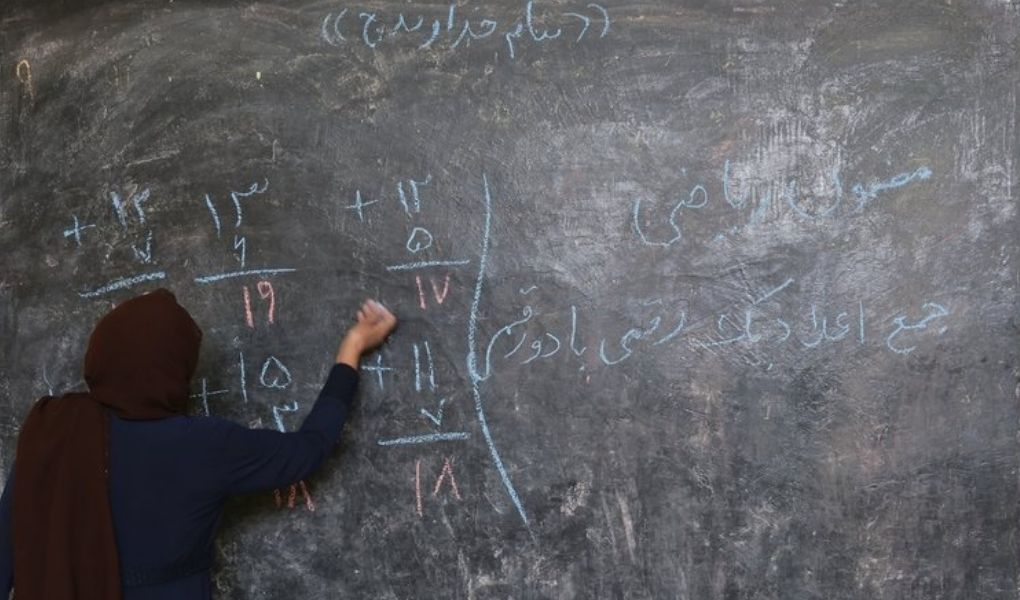 ((بنام خداوند ج))
مضمون ریاضی
جمع اعداد یک رقمی با دو رقم
+ ۱۲
۵
۱۷
۱۳
۶
۱۹
+ ۱۲
۷
+ ۱۱
۷
۱۸
+ ۱۵
۳
۱۸